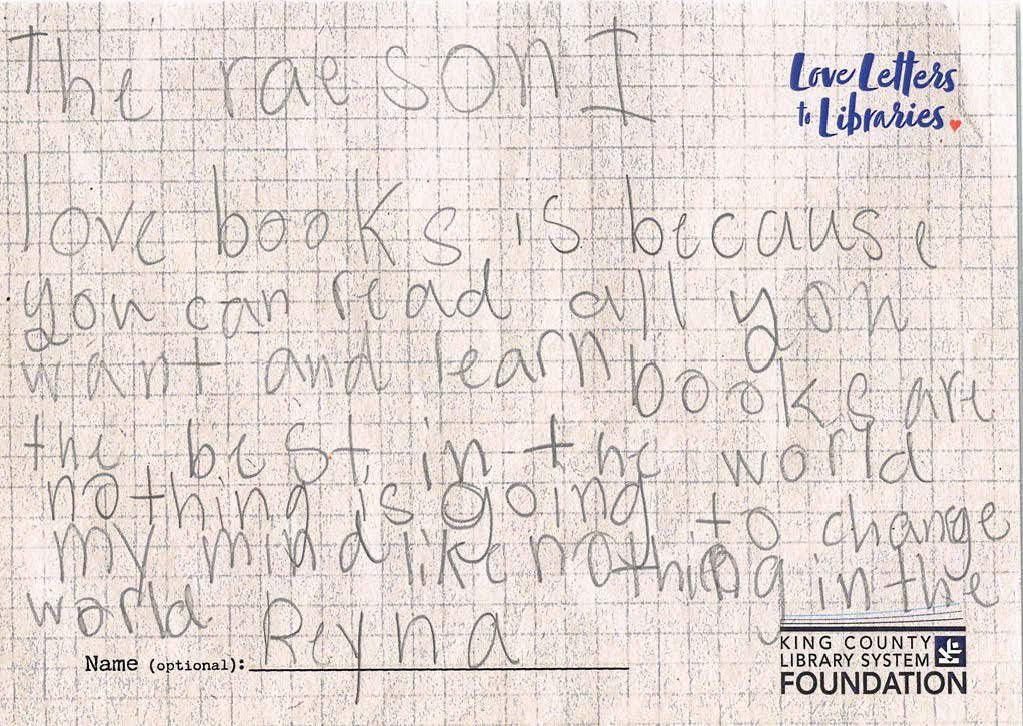 The raeson I
Love Letters
to Libraries
love books is because
you can read all you
want and learn books are
the best in the world
nothing is going to change
my mind like nothing in the
world Reyna
Name (optional):
KING COUNTY
LIBRARY SYSTEM
FOUNDATION